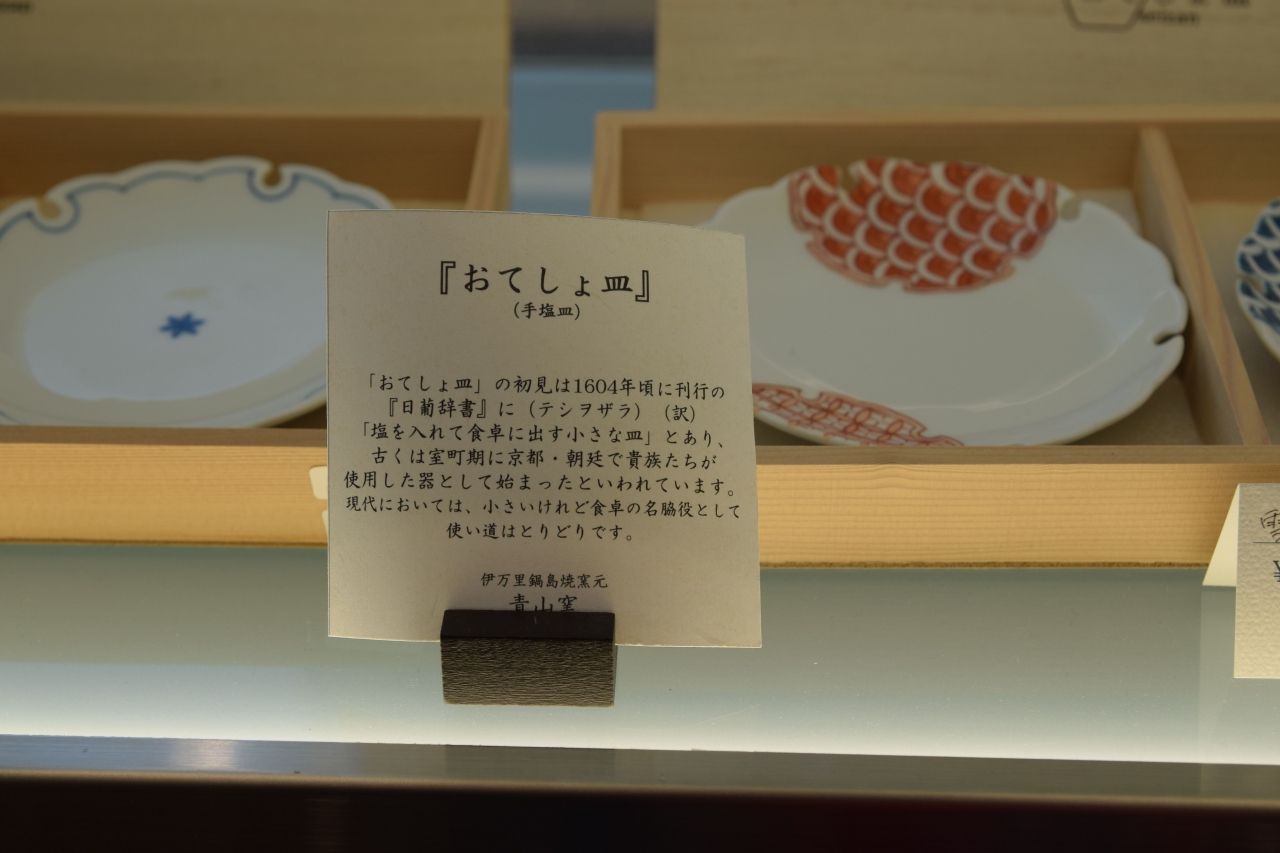 『おてしょ皿』
(手塩皿)
「おてしょ皿」の初見は1604年頃に刊行の
『日葡辞書』に(テシヲザラ)(訳)
「塩を入れて食卓に出す小さな皿」とあり、
古くは室町期に京都・朝廷で貴族たちが
使用した器として始まったといわれています。
現代においては、小さいけれど食卓の名脇役として
使い道はとりどりです。
伊万里鍋島焼窯元
青山窯